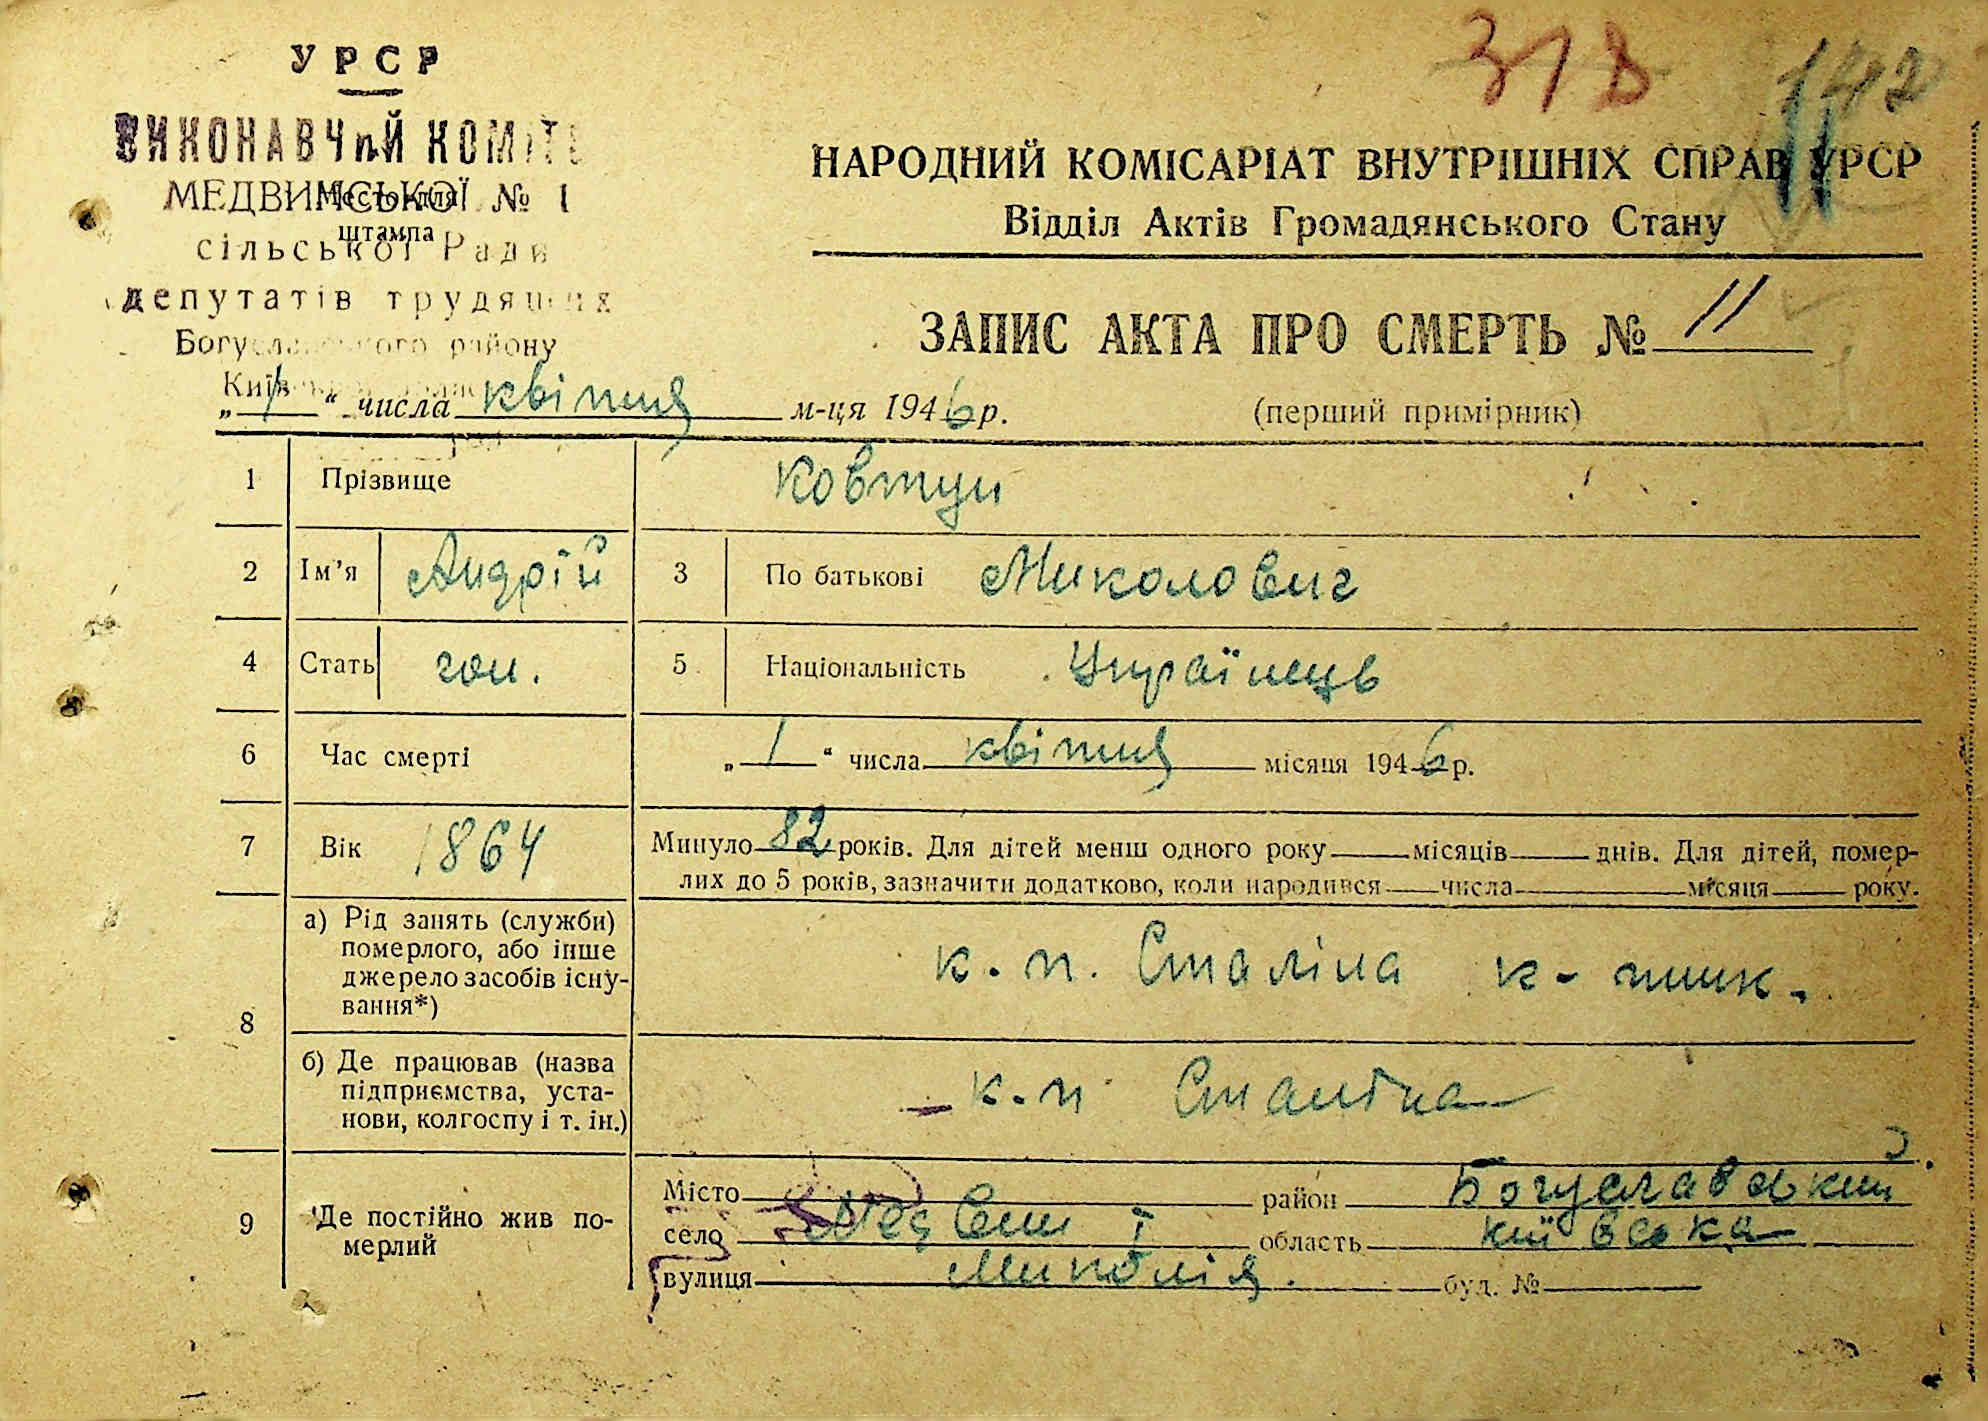 УРСР
ВИКОНАВЧИЙ КОМІТЕ
МЕДВИНСЬКОЇ № 1
Место для
штампа
сільської Ради
депутатів трудящих
Богуславського району
Київ
318
142
НАРОДНИЙ КОМІСАРІАТ ВНУТРІШНІХ СПРАВ УРСР
Відділ Актів Громадянського Стану
ЗАПИС АКТА ПРО СМЕРТЬ № 11
„ 1 “ числа квітня м-ця 1946 р.
(перший примірник)
1 Прізвище Ковтун
2 Ім’я Андрій 3 По батькові Миколович
4 Стать чол. 5 Національність Українець
6 Час смерті „ 1 “ числа квітня місяця 1946 р.
7 Вік 1864 Минуло 82 років. Для дітей менш одного року місяців днів. Для дітей, помер-
лих до 5 років, зазначити додатково, коли народився числа місяця року.
8 а) Рід занять (служби)
померлого, або інше
джерело засобів існу-
вання*)
к. п. Сталіна к-пник.
б) Де працював (назва
підприємства, уста-
нови, колгоспу і т. ін.)
к. п Сталіна
9 Де постійно жив по-
мерлий
Місто район Богуславський
село Медвин I область Київська
вулиця буд. №